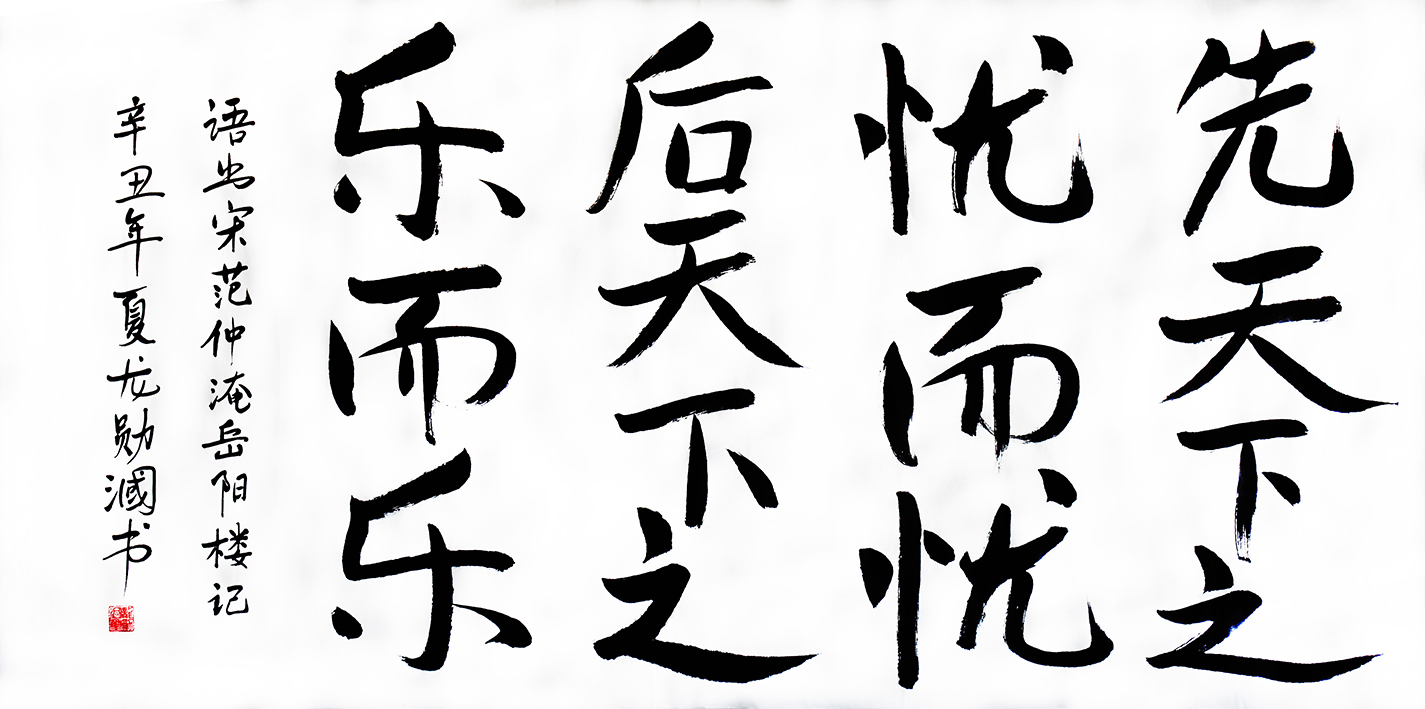 先天下之
忧而忧
后天下之
乐而乐
语出宋范仲淹岳阳楼记
辛丑年夏龙勋漍书